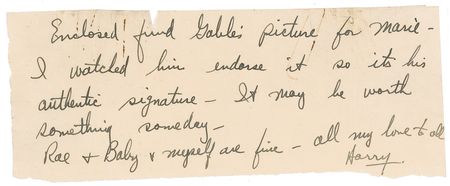 Enclosed find Gable's picture for Marie -
I watched him endorse it so its his
authentic signature - It may be worth
something someday -
Rae + Baby & myself are fine - all my love to all
Harry.